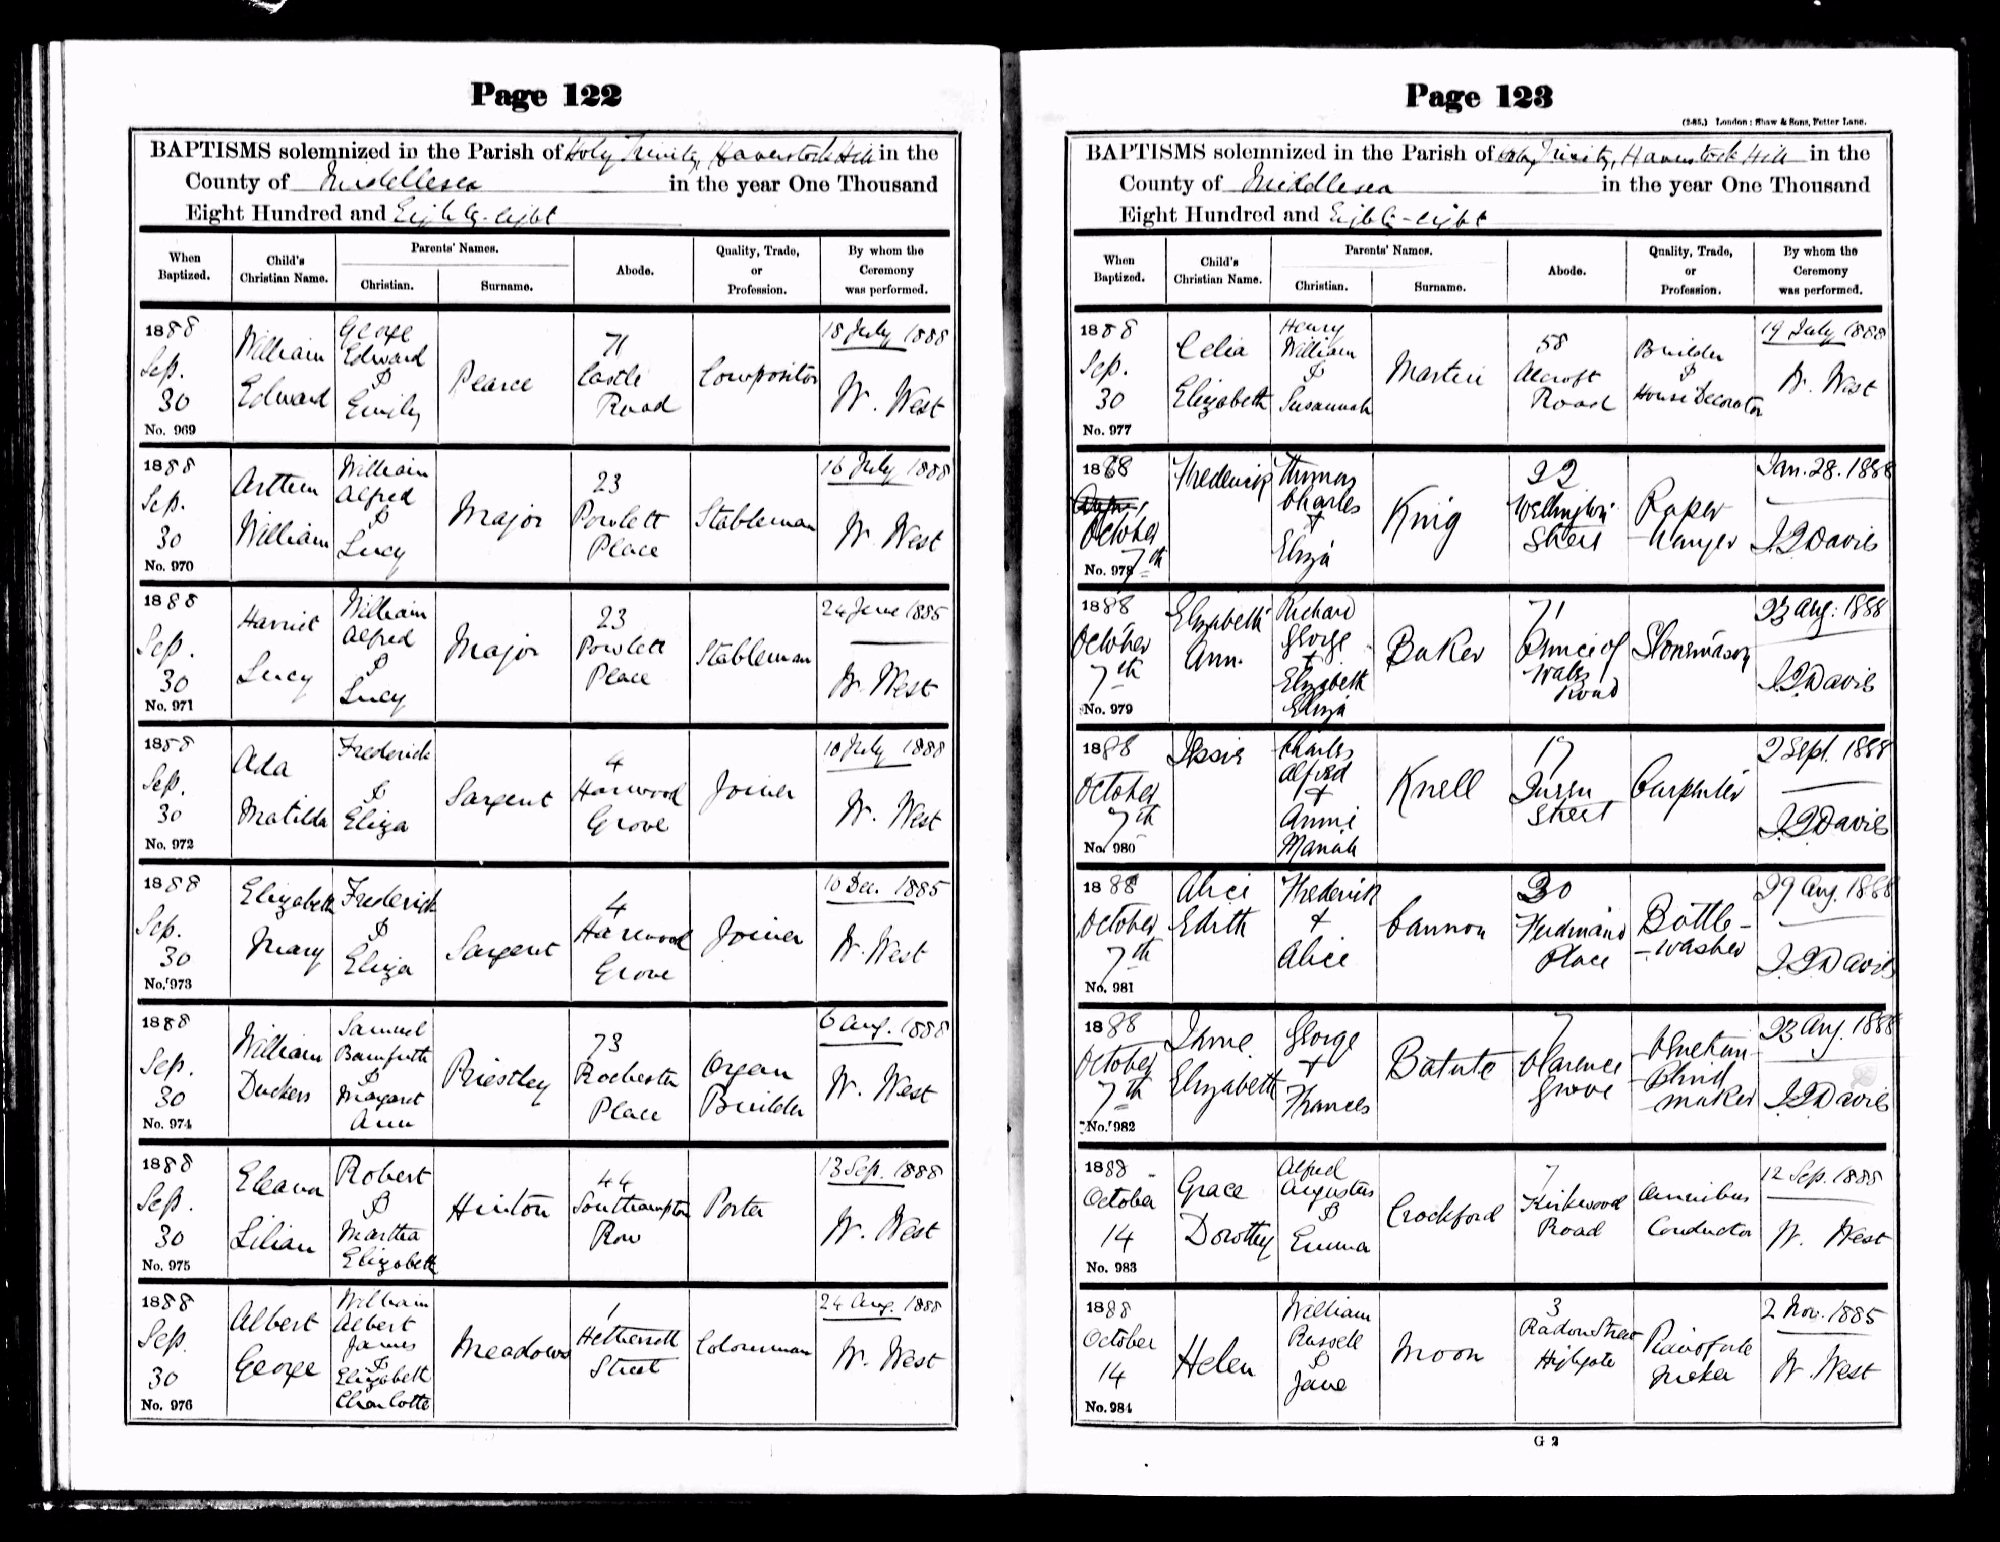 Page 122
BAPTISMS solemnized in the Parish of Holy Trinity, Haverstock Hill in the
County of Middlesex in the year One Thousand
Eight Hundred and Eighty-eight
When Baptized.
Child's Christian Name.
Parents' Names.
Christian.
Surname.
Abode.
Quality, Trade, or Profession.
By whom the Ceremony was performed.
1888 Sep. 30 No. 969
William Edward
George Edward & Emily
Pearce
71 Castle Road
Compositor
18 July 1888 W. West
1888 Sep. 30 No. 970
Arthur William
William Alfred & Lucy
Major
23 Powlett Place
Stableman
16 July 1888 W. West
1888 Sep. 30 No. 971
Harriet Lucy
William Alfred & Lucy
Major
23 Powlett Place
Stableman
24 June 1885 W. West
1888 Sep. 30 No. 972
Ada Matilda
Frederick & Eliza
Sargent
4 Harwood Grove
Joiner
10 July 1888 W. West
1888 Sep. 30 No. 973
Elizabeth Mary
Frederick & Eliza
Sargent
4 Harwood Grove
Joiner
10 Dec. 1885 W. West
1888 Sep. 30 No. 974
William Duckers
Samuel Bamforth & Margaret Ann
Priestley
73 Rochester Place
Organ Builder
6 Aug. 1888 W. West
1888 Sep. 30 No. 975
Eleanor Lilian
Robert & Martha Elizabeth
Hinton
44 Southampton Row
Porter
13 Sep. 1888 W. West
1888 Sep. 30 No. 976
Albert George
William Albert James & Elizabeth Charlotte
Meadows
1 Street
Colourman
24 Aug. 1888 W. West
Page 123
(2-85.) London: Shaw & Sons, Fetter Lane.
BAPTISMS solemnized in the Parish of Holy Trinity, Haverstock Hill in the
County of Middlesex in the year One Thousand
Eight Hundred and Eighty-eight
When Baptized.
Child's Christian Name.
Parents' Names.
Christian.
Surname.
Abode.
Quality, Trade, or Profession.
By whom the Ceremony was performed.
1888 Sep. 30 No. 977
Celia Elizabeth
Henry William & Susannah
Martin
58 Alcroft Road
Builder & House Decorator
19 July 1888 W. West
1888 October 7th No. 978
Frederick
Thomas Charles + Eliza
King
22 Wellington Street
Paper hanger
Jan. 28. 1888 Davies
1888 October 7th No. 979
Elizabeth Ann.
Richard George + Elizabeth Eliza
Baker
71 Prince of Wales Road
Stonemason
23 Aug: 1888 Davies
1888 October 7th No. 980
Jessie
Charles Alfred + Annie Mariah
Knell
17 Street
Carpenter
2 Sept. 1888 Davies
1888 October 7th No. 981
Alice Edith
Frederick + Alice
Cannon
30 Ferdinand Place
Bottle-washer
29 Aug. 1888 Davies
1888 October 7th No. 982
Elizabeth
George + Frances
Batute
7 Clarence Grove
Venetian Blind maker
23 Aug. 1888 Davies
1888 October 14 No. 983
Grace Dorothy
Alfred Augustus & Emma
Crockford
7 Kirkwood Road
Omnibus Conductor
12 Sep. 1888 W. West
1888 October 14 No. 984
Helen
William Russell & Jane
Moon
3 Radon Street Highgate
Pianoforte Maker
2 Nov. 1885 W. West
G 2